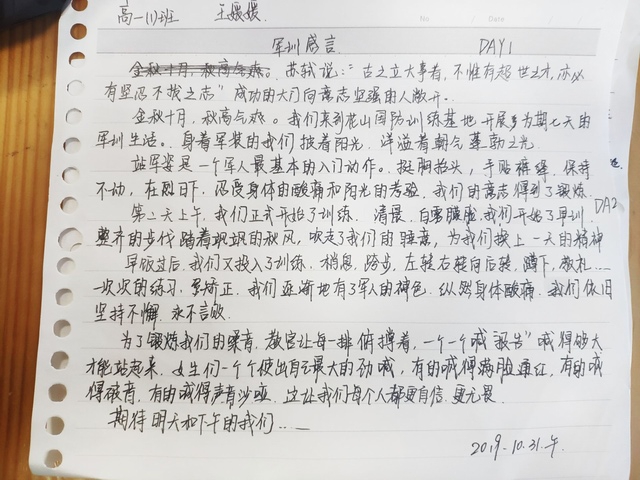 高一(1)班 王媛媛
No Date
军训感言 DAY1
金秋十月,秋高气爽。苏轼说:“古之立大事者,不惟有超世之才,亦必
有坚忍不拔之志”成功的大门向意志坚强的人敞开。
金秋十月,秋高气爽。我们来到龙山国防训练基地开展为期七天的
军训生活。身着军装的我们披着阳光,洋溢着朝气蓬勃之光
站军姿是一个军人最基本的入门动作。挺胸抬头,手贴裤缝,保持
不动,在烈日下,忍受身体的酸痛和阳光的考验,我们的意志得到了锻炼
第二天上午,我们正式开始了训练.清晨,白雾朦胧,我们开始了早训 DAY2
整齐的步伐踏着飒飒的秋风,吹走了我们的睡意,为我们换上一天的精神
早饭过后,我们又投入了训练.稍息,跨步,左转右转向后转,蹲下,敬礼……
一次次的练习,矫正,我们逐渐地有了军人的神色.纵然身体酸痛,我们依旧
坚持不懈,永不言败.
为了锻炼我们的嗓音,教官让每一排俯撑着,一个一个喊“报告”喊得够大
才能站起来.女生们一个个使出自己最大的劲喊,有的喊得满脸通红,有的喊
得破音,有的喊得声音沙哑.这让我们每个人都更自信,更无畏.
期待明天和下午的我们……
2019.10.31.午